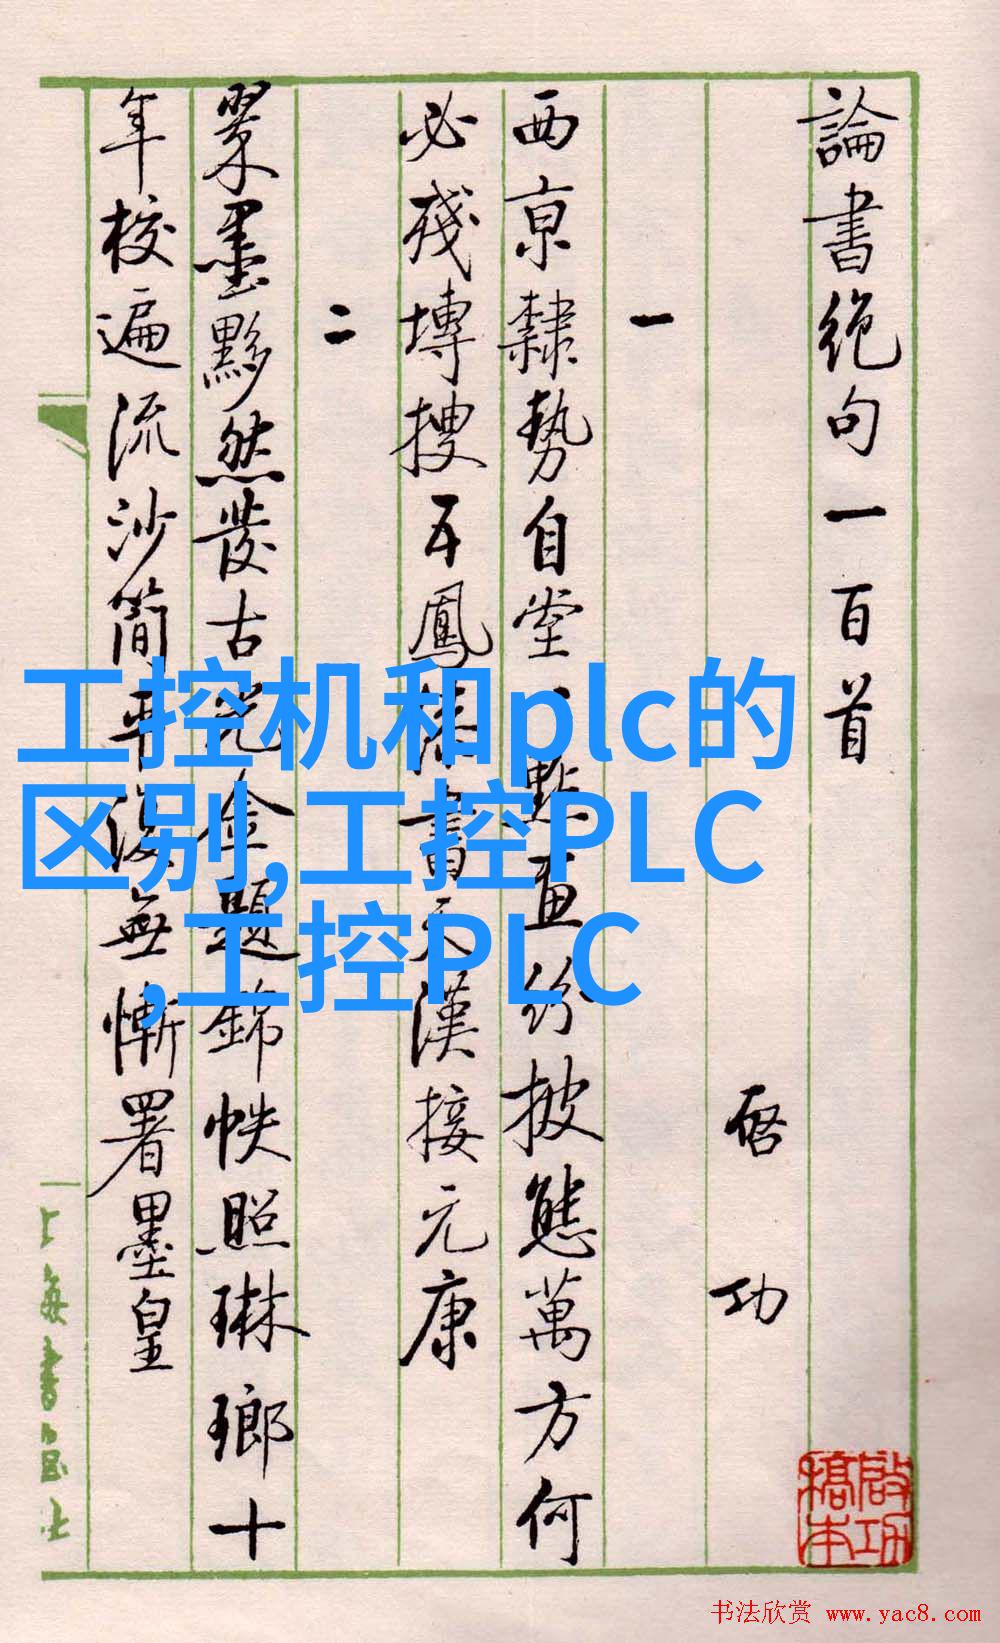 論書絕句一百首
啓功
一
西京隸勢自堂堂點畫紛披態萬方何
必殘塼搜五鳳漆書天漢接元康
二
翠墨黟然發古光金題錦帙照琳瑯十
年校遍流沙簡平復無慚署墨皇
上海書画社
啟功
稿本
工控机和plc的
区别,工控PLC
,工控PLC
书法欣赏 www.yac8.com